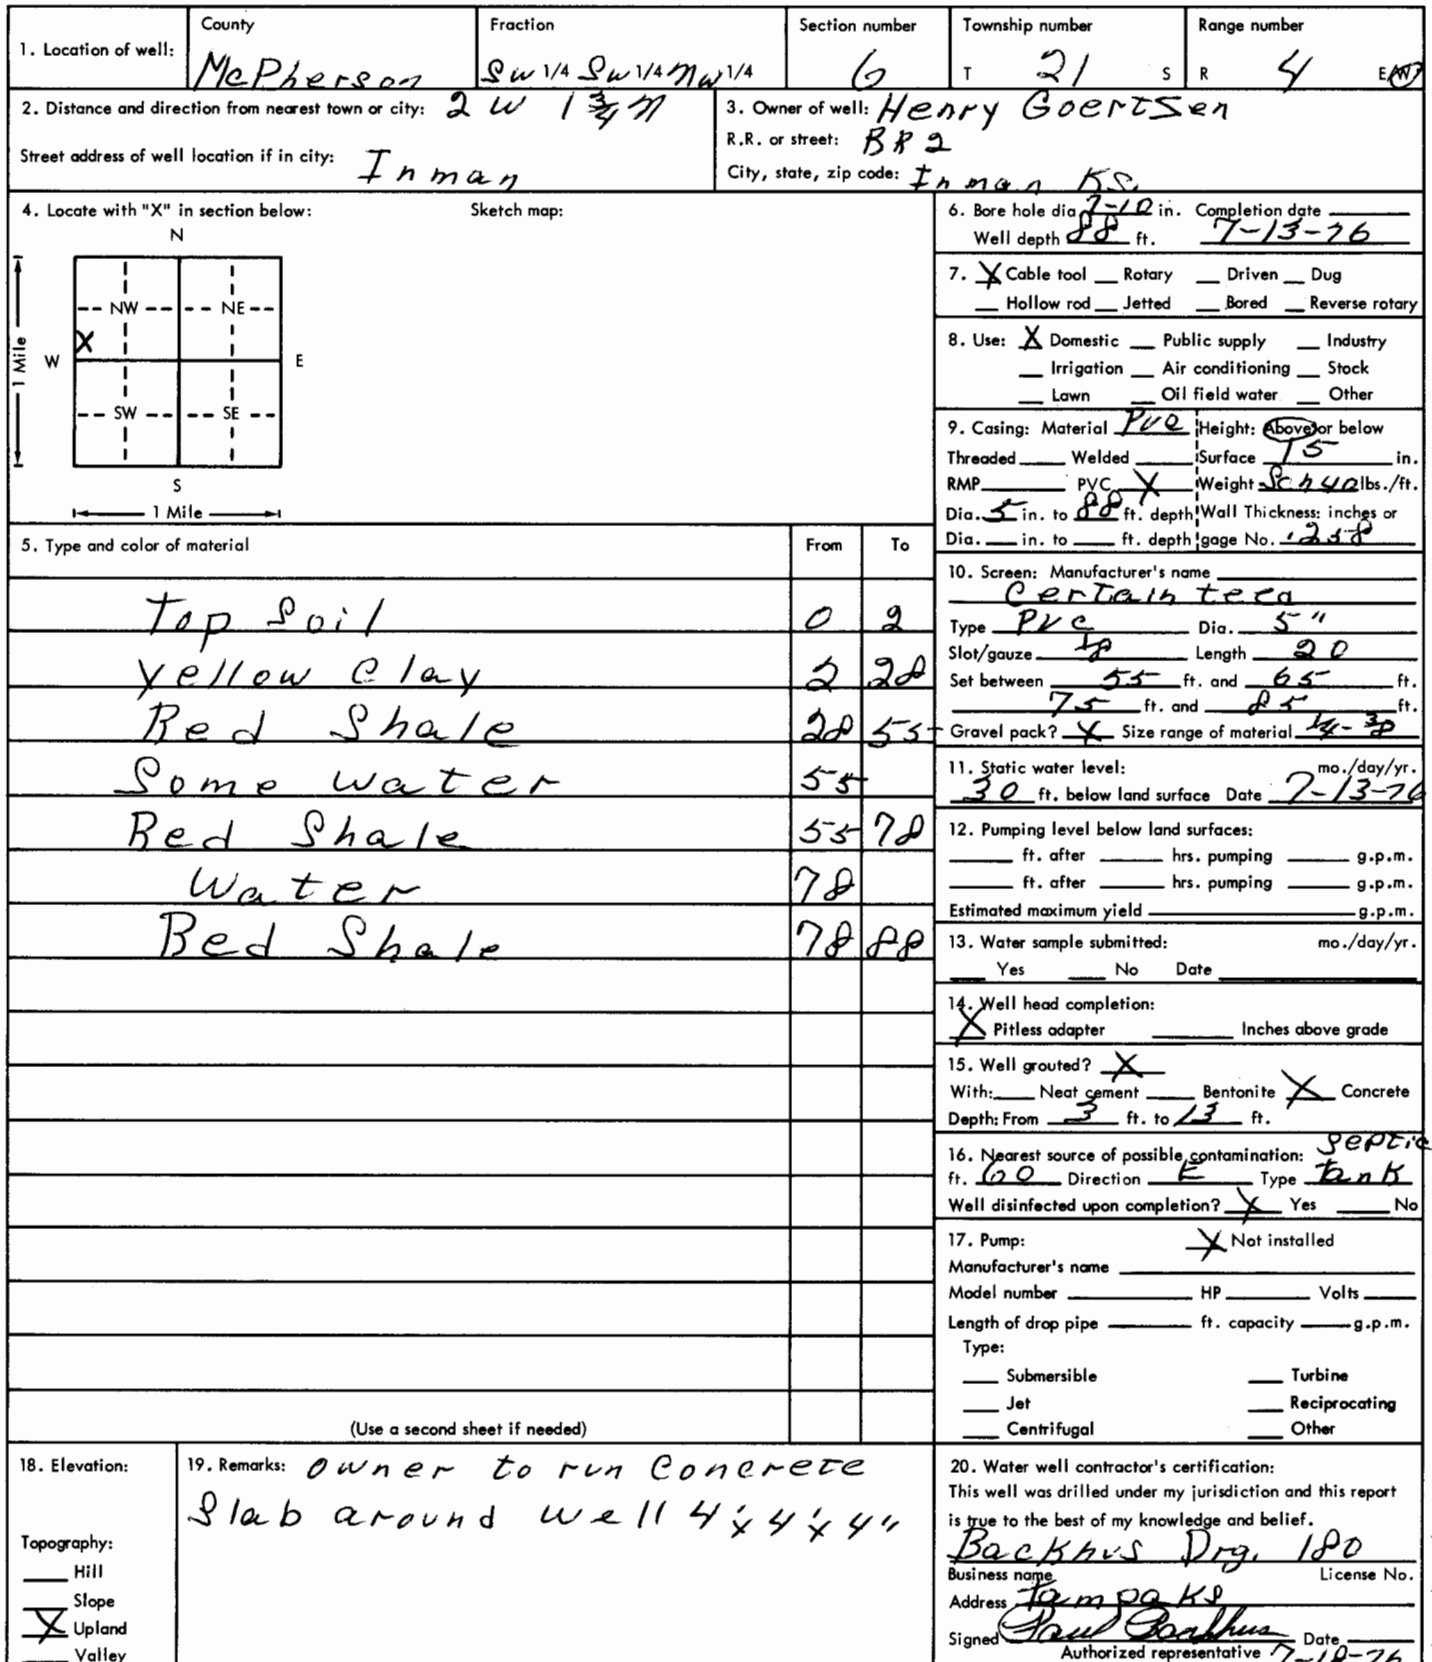 County Fraction Section number Township number Range number
1. Location of well: McPherson SW 1/4 SW 1/4 NW 1/4 6 T 21 S R 4 E/W
2. Distance and direction from nearest town or city: 2 W 1 3/4 N
Street address of well location if in city: Inman
3. Owner of well: Henry Goertsen
R.R. or street: BR 2
City, state, zip code: Inman KS.
4. Locate with "X" in section below: Sketch map:
N
NW NE
X
W E
1 Mile
SW SE
S
1 Mile
5. Type and color of material From To
Top Soil 0 2
Yellow Clay 2 28
Red Shale 28 55
Some Water 55
Red Shale 55 78
Water 78
Red Shale 78 88
(Use a second sheet if needed)
6. Bore hole dia 7-10 in. Completion date
Well depth 88 ft. 7-13-76
7. X Cable tool __ Rotary __ Driven __ Dug
__ Hollow rod __ Jetted __ Bored __ Reverse rotary
8. Use: X Domestic __ Public supply __ Industry
__ Irrigation __ Air conditioning __ Stock
__ Lawn __ Oil field water __ Other
9. Casing: Material PVC Height: Above or below
Threaded ____ Welded ____ Surface 15 in.
RMP ____ PVC X Weight Sch 40 lbs./ft.
Dia. 5 in. to 88 ft. depth Wall Thickness: inches or
Dia. __ in. to __ ft. depth gage No. .258
10. Screen: Manufacturer's name
Certain teed
Type PVC Dia. 5"
Slot/gauze 1/8 Length 20
Set between 55 ft. and 65 ft.
75 ft. and 85 ft.
Gravel pack? X Size range of material 1/4 - 3/8
11. Static water level: mo./day/yr.
30 ft. below land surface Date 7-13-76
12. Pumping level below land surfaces:
____ ft. after ____ hrs. pumping ____ g.p.m.
____ ft. after ____ hrs. pumping ____ g.p.m.
Estimated maximum yield ____ g.p.m.
13. Water sample submitted: mo./day/yr.
__ Yes __ No Date ____
14. Well head completion:
X Pitless adapter ____ Inches above grade
15. Well grouted? X
With: __ Neat cement __ Bentonite X Concrete
Depth: From 3 ft. to 13 ft.
16. Nearest source of possible contamination: Septic
ft. 60 Direction E Type Tank
Well disinfected upon completion? X Yes __ No
17. Pump: X Not installed
Manufacturer's name ____
Model number ____ HP ____ Volts ____
Length of drop pipe ____ ft. capacity ____ g.p.m.
Type:
__ Submersible __ Turbine
__ Jet __ Reciprocating
__ Centrifugal __ Other
18. Elevation:
Topography:
__ Hill
__ Slope
X Upland
__ Valley
19. Remarks: Owner to run Concrete
Slab around well 4' x 4' x 4"
20. Water well contractor's certification:
This well was drilled under my jurisdiction and this report
is true to the best of my knowledge and belief.
Backhus Drg. 180
Business name License No.
Address Tampa KS
Signed Paul Backhus Date
Authorized representative 7-18-76